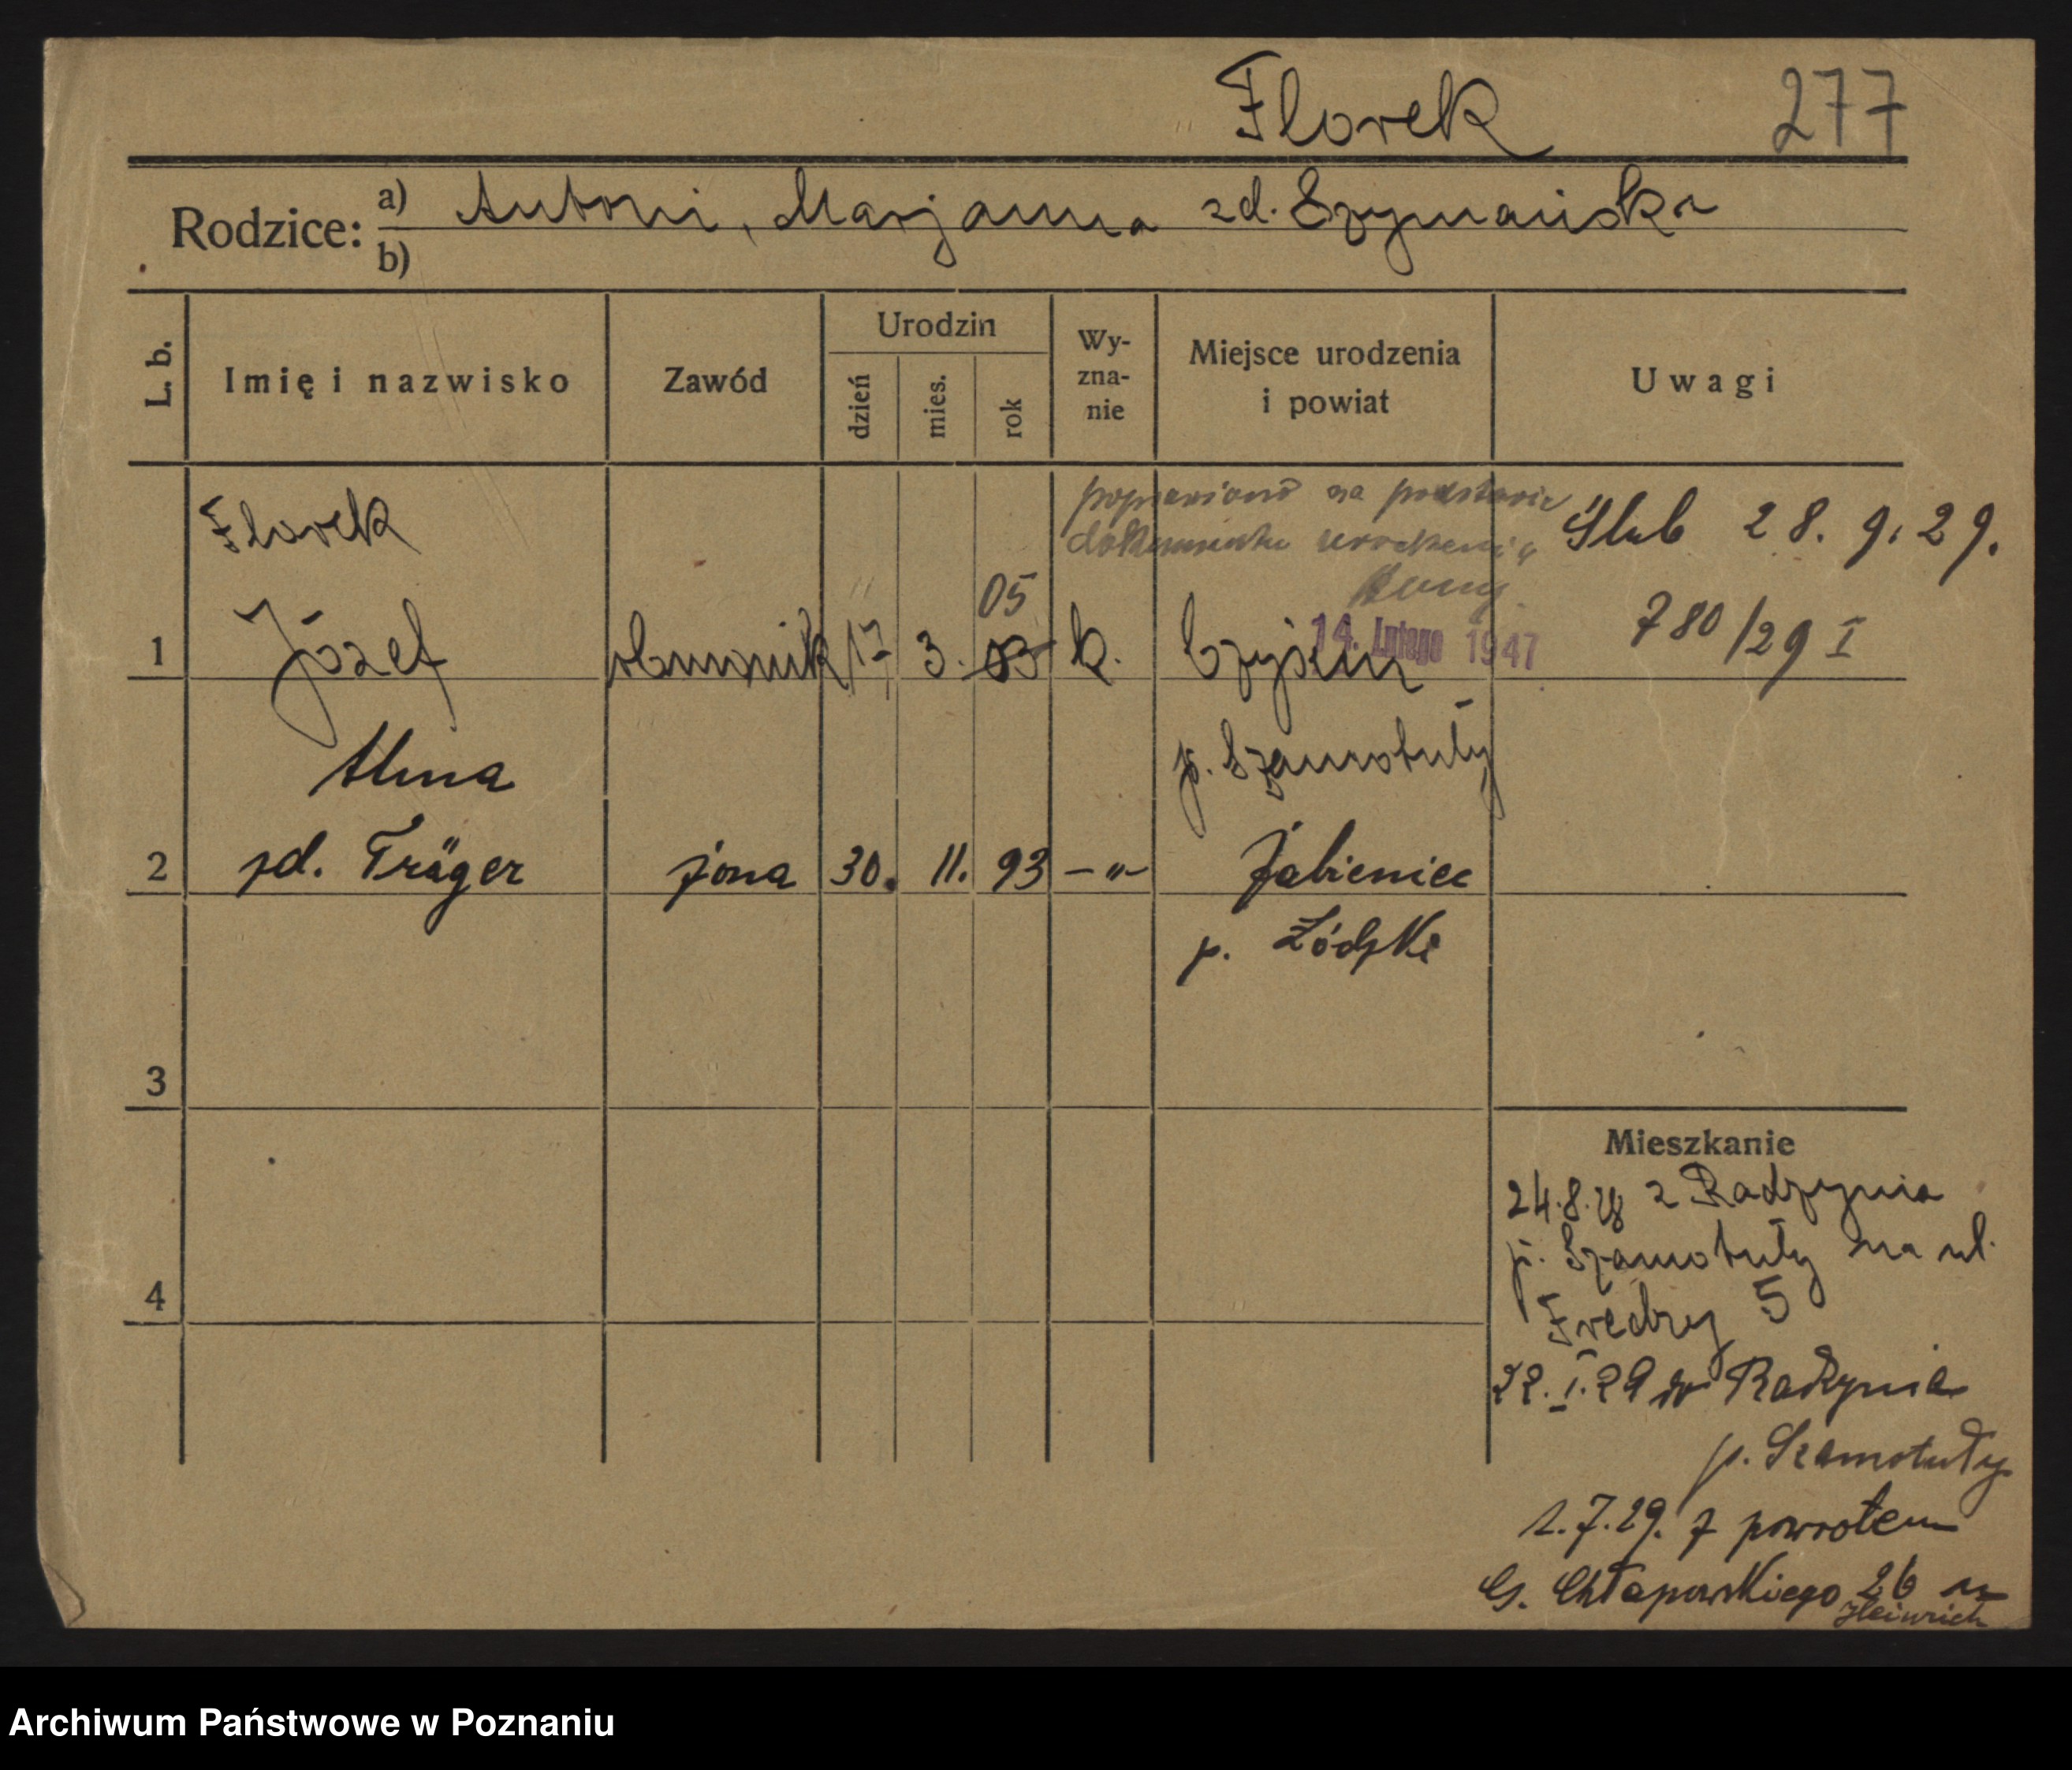 Florek 277
Rodzice: a) Antoni, Marjanna zd. Szymańska
b)
L. b. Imię i nazwisko Zawód Urodzin dzień mies. rok Wy-zna-nie Miejsce urodzenia i powiat Uwagi
poprawiono na podstawie
dokumentu urodzenia
Florek Ślub 28. 9. 29.
05
1 Józef 17 3. 83 k. 14. Lutego 1947 780/29 I
p. Szamotuły
Alma
2 zd. Träger żona 30. 11. 93 –"– Żabieniec
p. Łódzki
3
Mieszkanie
24.8.28 z Radzynia
p. Szamotuły na ul.
4
Fredry 5
22.I.29 w Radzynia
p. Szamotuły
1.7.29. z powrotem
G. Chłapowskiego 26 u
Heinrich
Archiwum Państwowe w Poznaniu